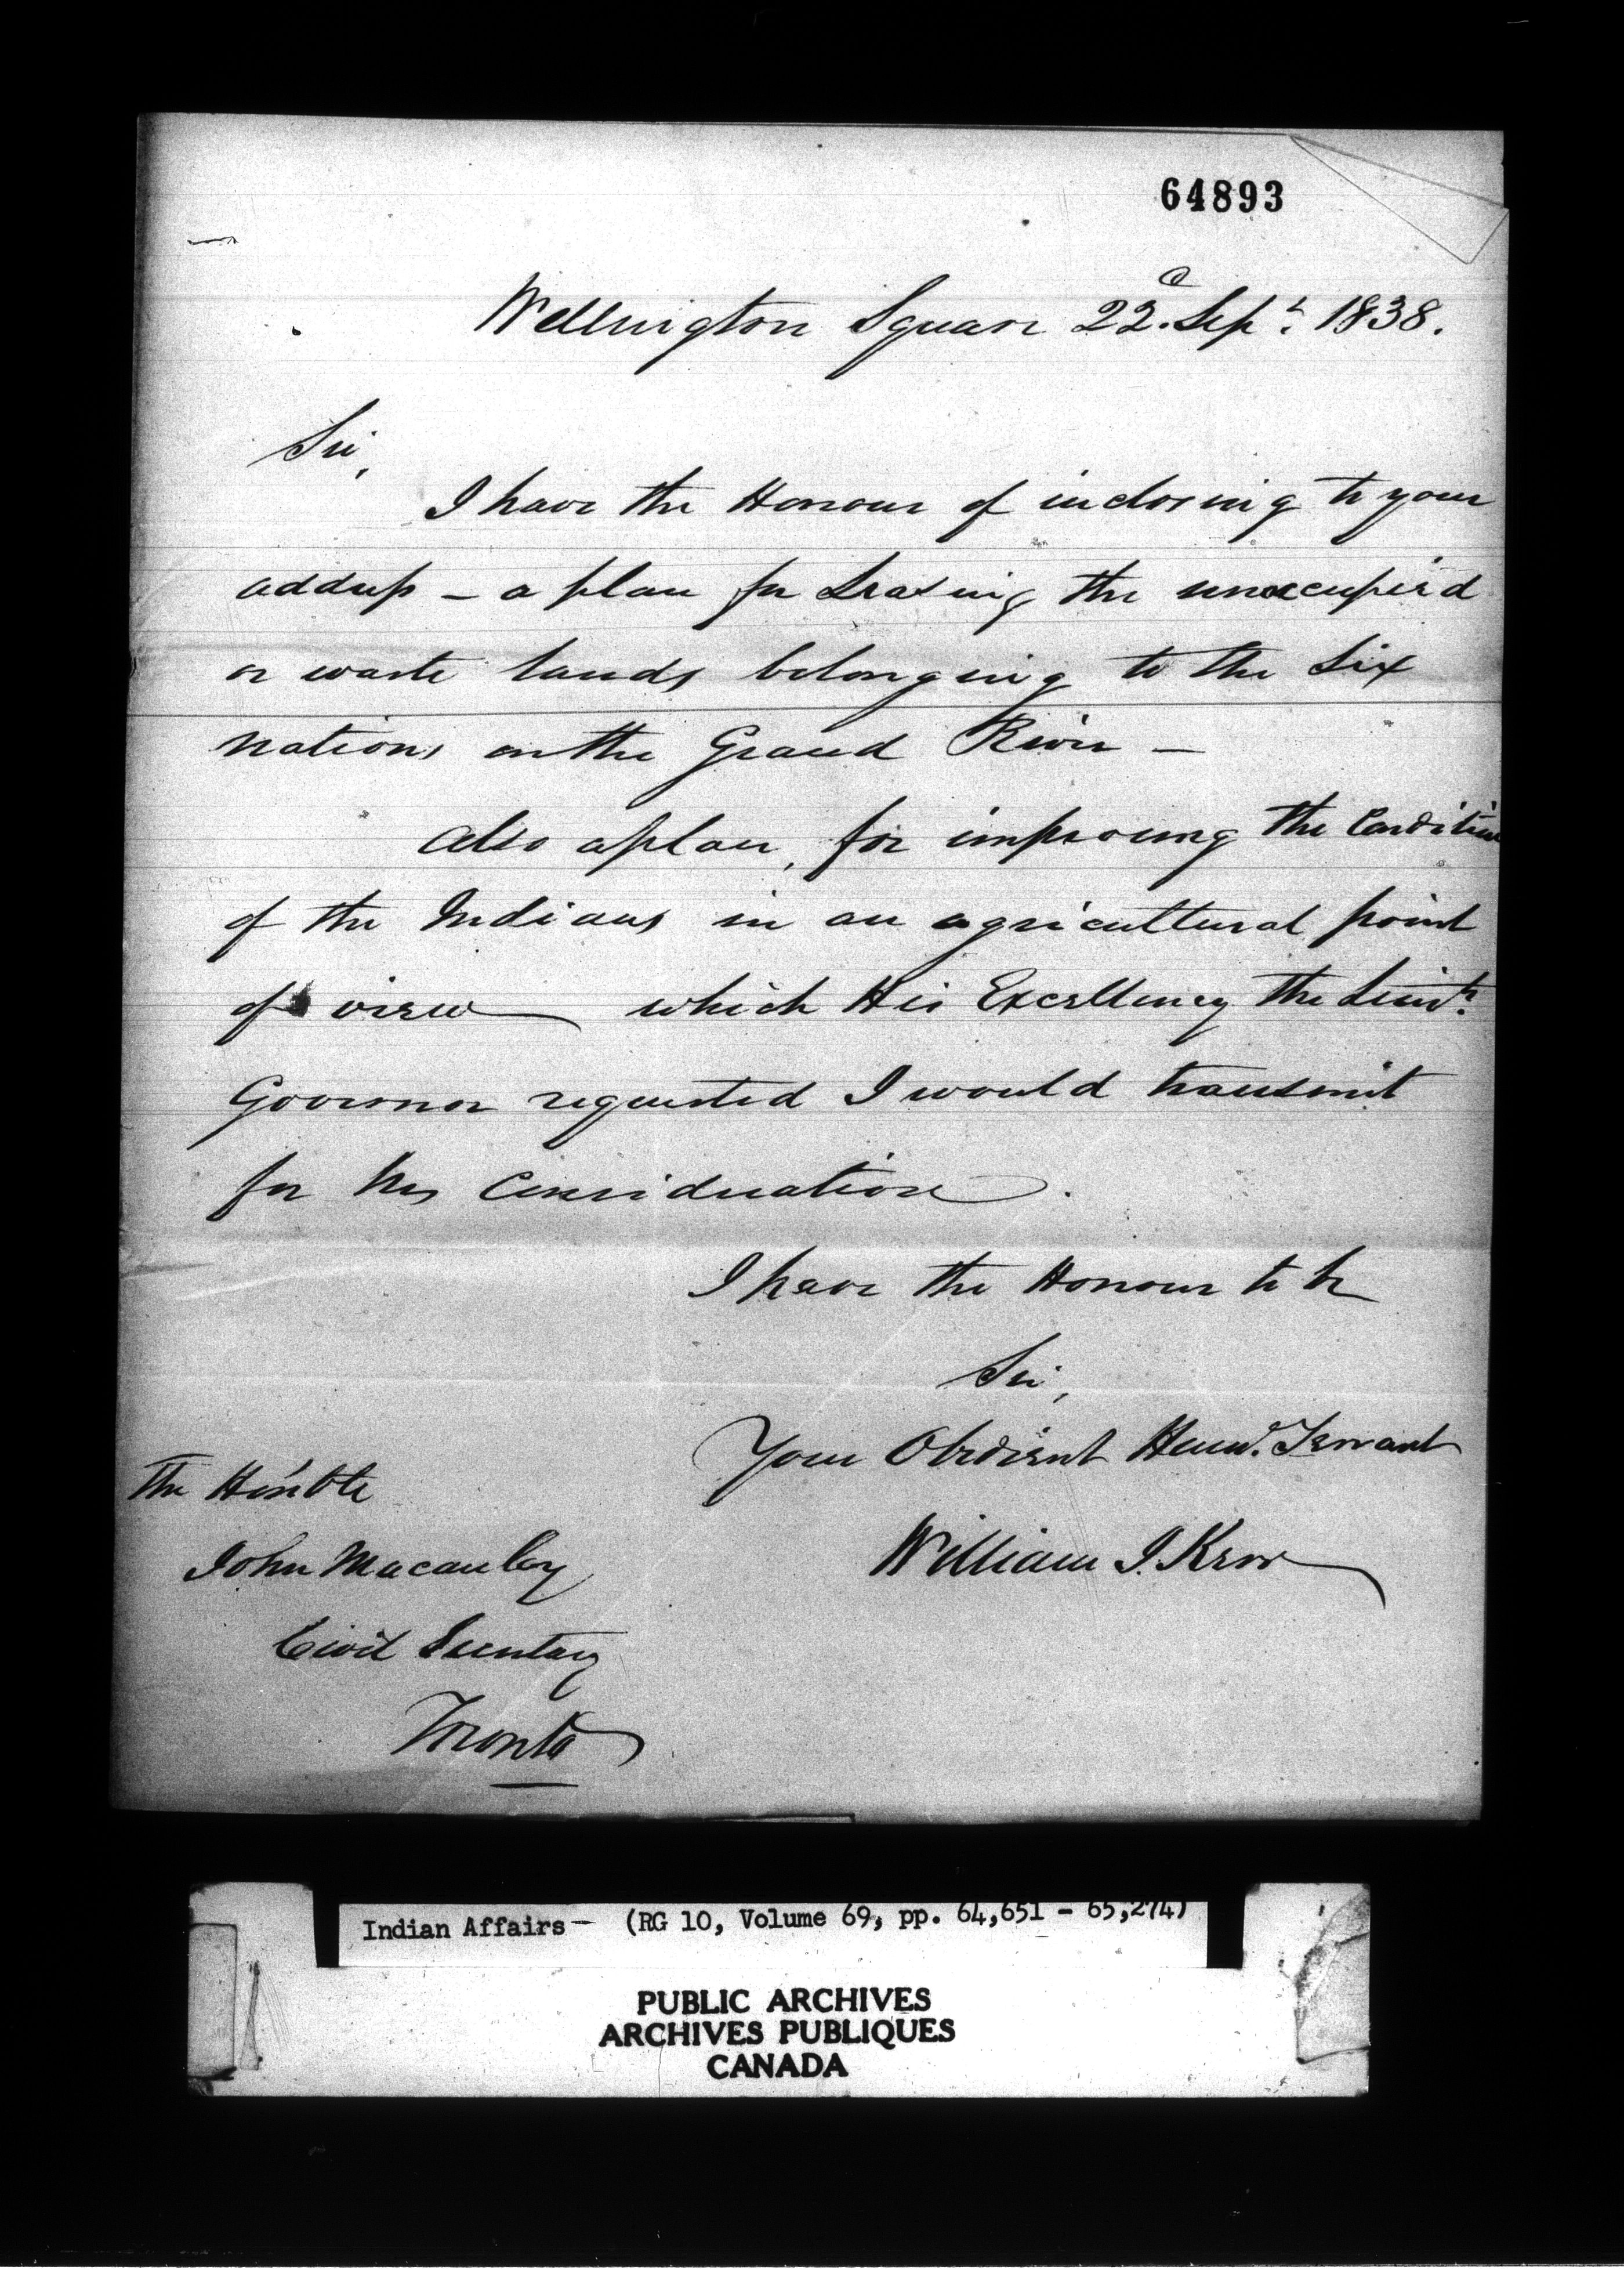 64893
Wellington Square 22d. Sept. 1838.
Sir,
I have the Honour of inclosing to your
address – a plan for Leasing the unoccupied
or waste lands belonging to the Six
nations on the Grand River –
Also a plan, for improving the Condition
of the Indians in an agricultural point
of view which His Excellency the Lieut.
Governor requested I would transmit
for his Consideration.
I have the Honour to be
Sir,
Your Obedient Humb. Servant
William J. Kerr
The Honble
John Macaulay
Civil Secretary
Toronto
Indian Affairs – (RG 10, Volume 69, pp. 64,651 – 65,274)
PUBLIC ARCHIVES
ARCHIVES PUBLIQUES
CANADA